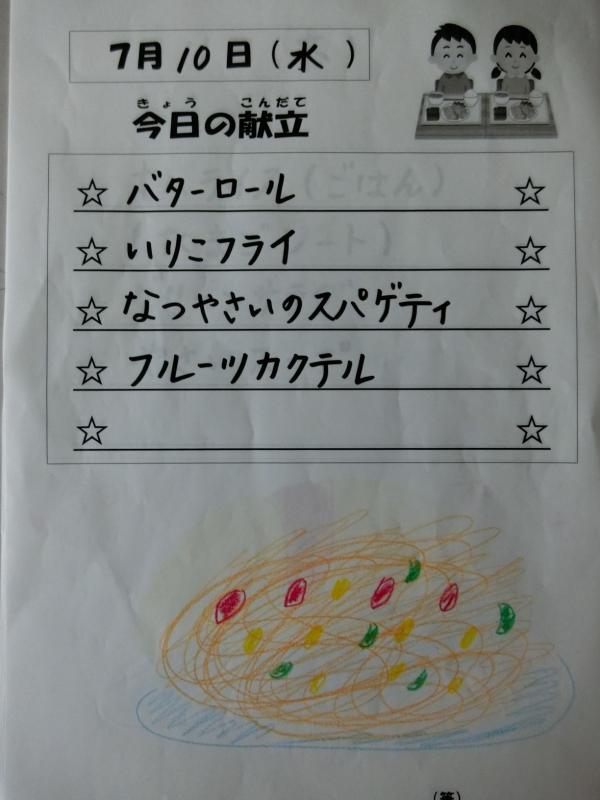 7月10日(水)
きょう こんだて
今日の献立
☆ バターロール ☆
☆ いりこフライ ☆
☆ なつやさいのスパゲティ ☆
☆ フルーツカクテル ☆
☆ ☆